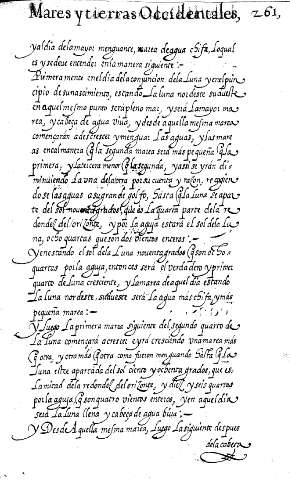 Mares y tierras Occidentales, 261,
y al dia de la mayor menguante, marea de agua chifa, lo qual
es y se deve entender en la manera siguiente:
Primeramente en el dia de la conjuncion de la Luna y en el prin
cipio de su nacimiento, estando la Luna nordeste sudueste
en aquel mesmo punto sera pleno mar, y sera la mayor ma
rea, y cabeça de agua viva, y desde aquella mesma marea
començaran a descrescer y menguar Las aguas, y las mare
as en tal manera que la segunda marea sera mas pequeña que la
primera, y la tercera menor que la segunda, y assi se yran di
minuiendo La una de la otra por su cuenta y razon,
do se las aguas a su grande golfo, hasta que la Luna se apar
te del sol grados, que es La quarta parte de la re
dondez del orizonte, y por la aguja estará el sol de la Lu
na, ocho quartas que son dos vientos enteros:
Y en estando el sol de la Luna noventa grados que son ocho
quartas por la aguja, entonces será el verdadero y primer
quarto de Luna creciente, y la marea de aquel dia estando
la Luna nordeste, sudueste será la agua mas chifa, y mas
pequeña marea:
Y luego La primera marea siguiente del segundo quarto de
la Luna començara a crescer e yrá cresciendo una marea mas
que otra, y otra mas que otra como fueron menguando hasta que la
luna este apartada del sol ciento y ochenta grados, que es
la mitad de la redondez del orizonte, y diez y seis quartas
por la aguja, que son quatro vientos enteros, y en aquel dia
será La luna llena y cabeça de agua biva:
Y Desde Aquella mesma marea, Luego La siguiente despues
de la cabeça